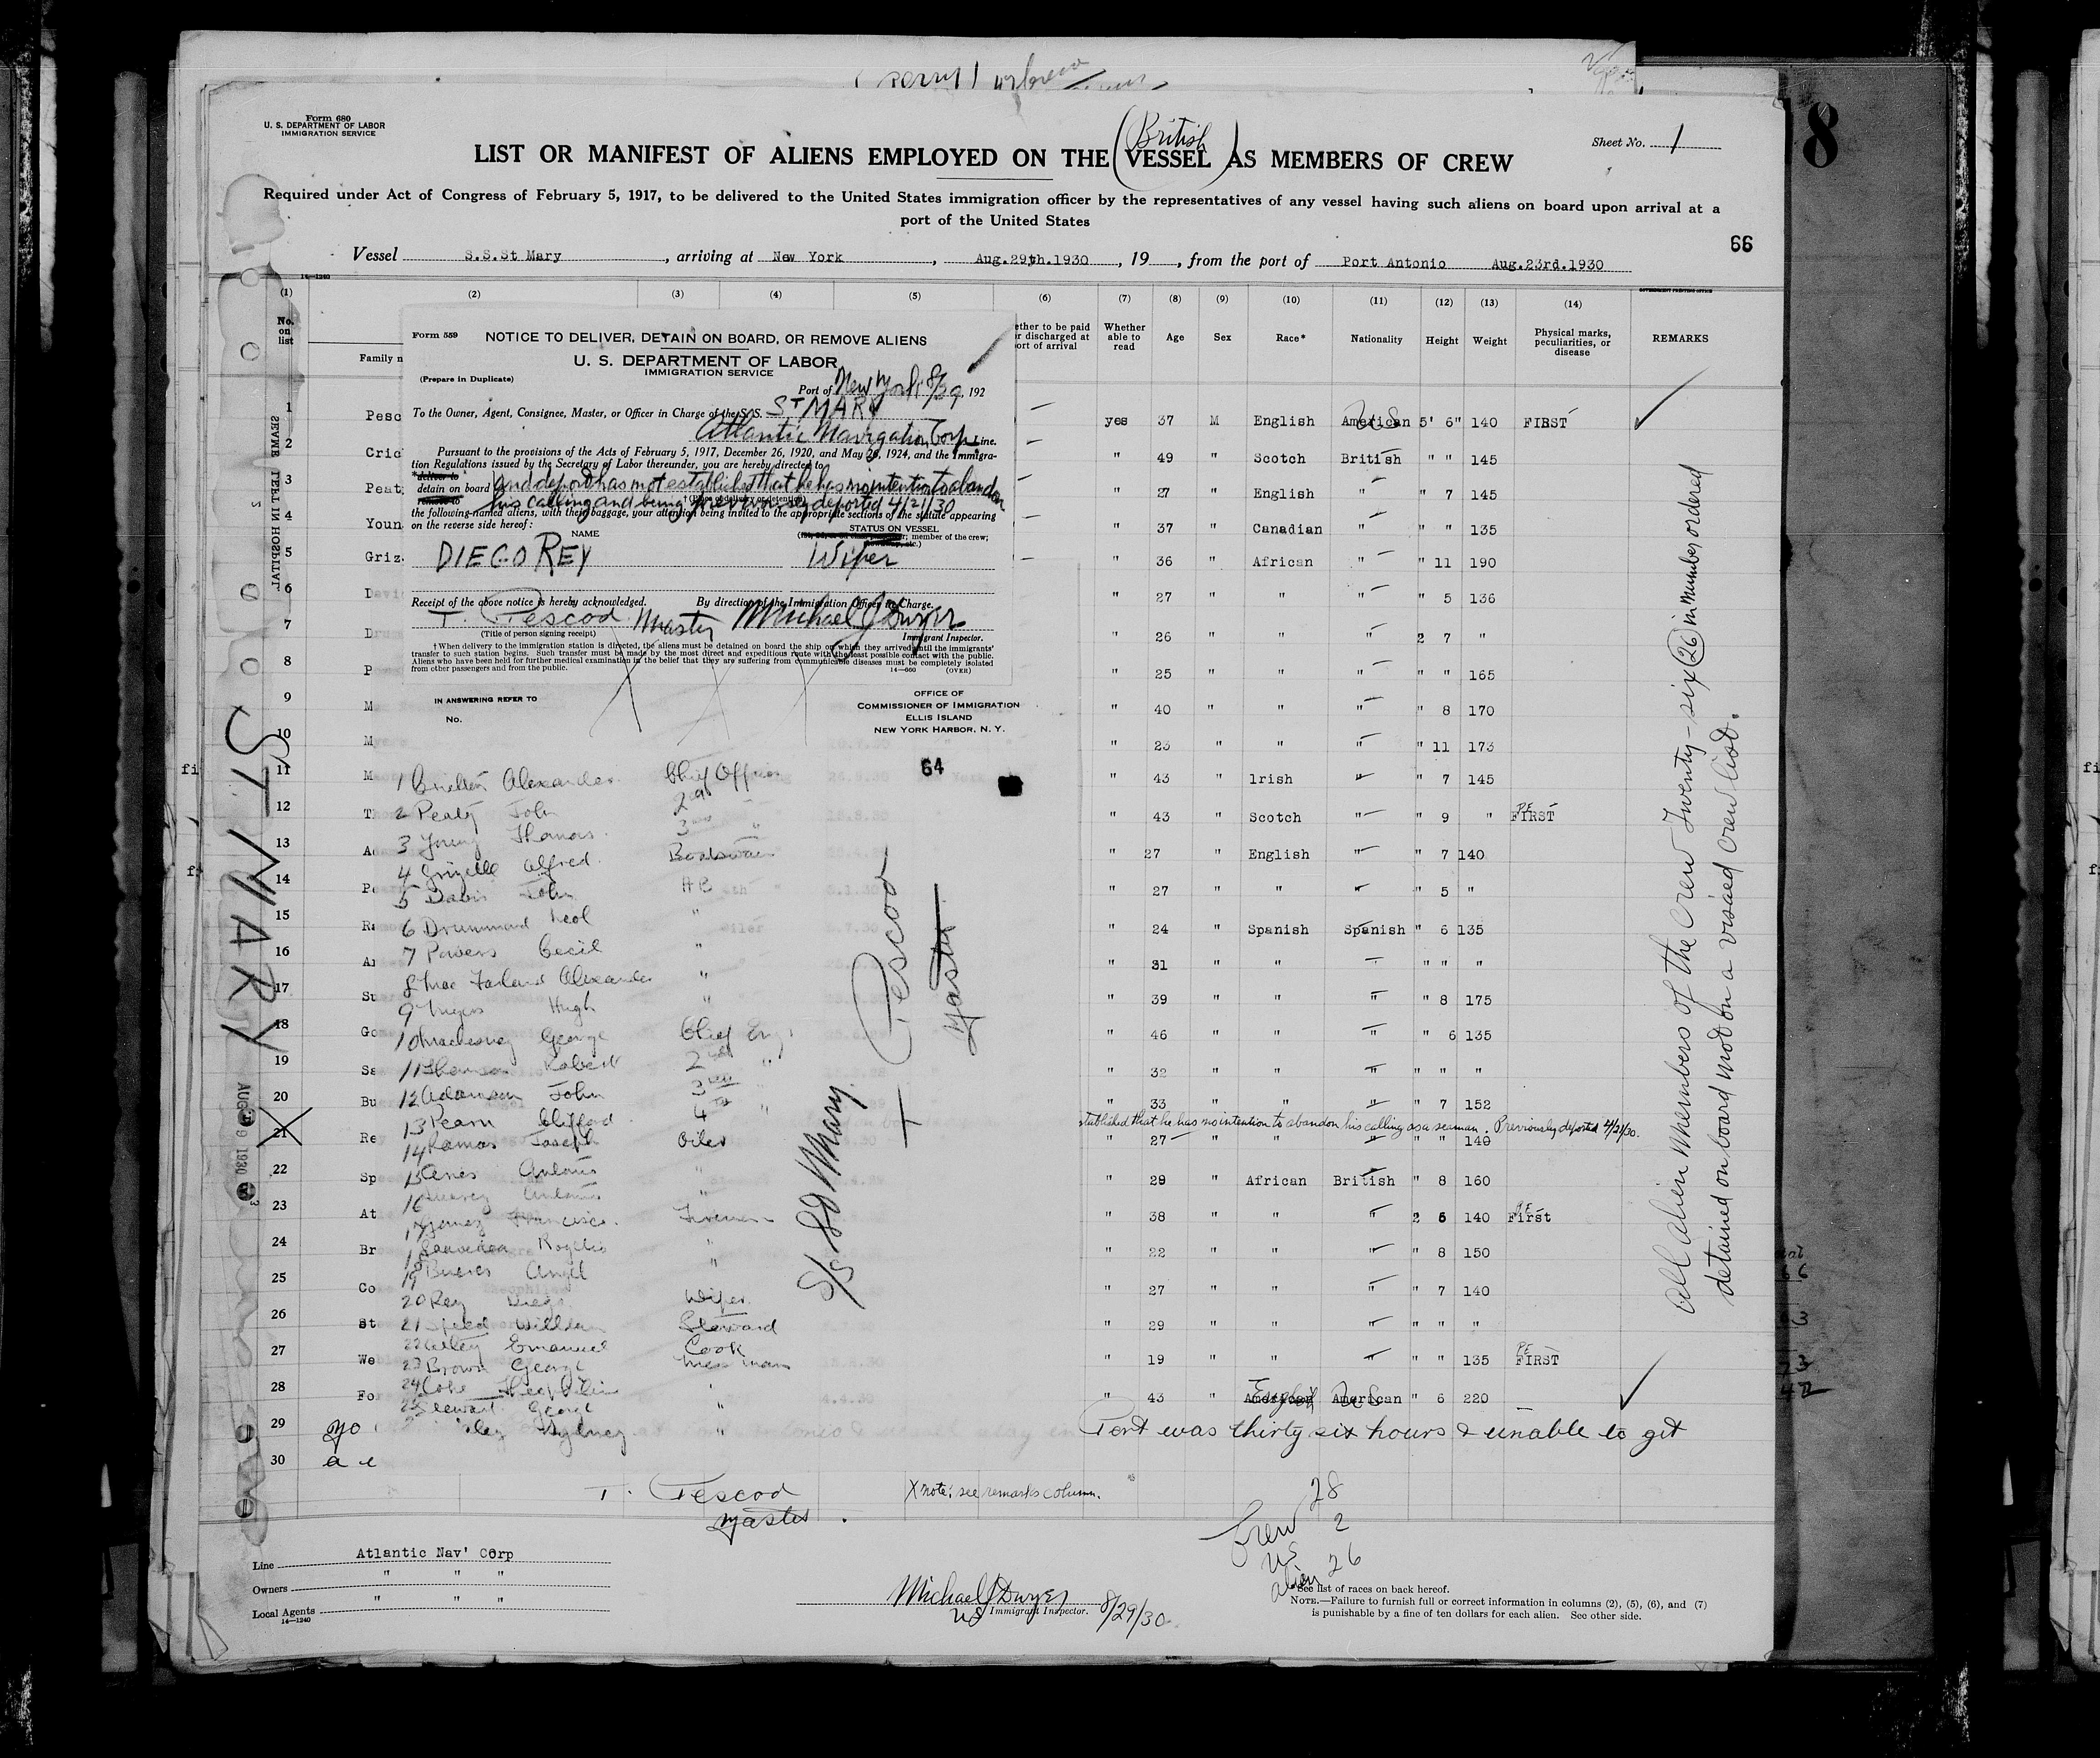 Form 680
U. S. DEPARTMENT OF LABOR
IMMIGRATION SERVICE
Sheet No. 1
(British)
LIST OR MANIFEST OF ALIENS EMPLOYED ON THE VESSEL AS MEMBERS OF CREW
Required under Act of Congress of February 5, 1917, to be delivered to the United States immigration officer by the representatives of any vessel having such aliens on board upon arrival at a
port of the United States
66
8
Vessel S.S.St Mary, arriving at New York, Aug.29th.1930, 19, from the port of Port Antonio Aug.23rd.1930
14-1240
GOVERNMENT PRINTING OFFICE
(1) (2) (3) (4) (5) (6) (7) (8) (9) (10) (11) (12) (13) (14)
No. on list
Family n
ether to be paid
r discharged at
ort of arrival
Whether able to read
Age
Sex
Race*
Nationality
Height
Weight
Physical marks, peculiarities, or disease
REMARKS
Form 559
NOTICE TO DELIVER, DETAIN ON BOARD, OR REMOVE ALIENS
U. S. DEPARTMENT OF LABOR
IMMIGRATION SERVICE
(Prepare in Duplicate)
Port of New York 8/29, 192
To the Owner, Agent, Consignee, Master, or Officer in Charge of the S.S. ST MARY
Atlantic Navigation Corp Line.
Pursuant to the provisions of the Acts of February 5, 1917, December 26, 1920, and May 26, 1924, and the Immigra-
tion Regulations issued by the Secretary of Labor thereunder, you are hereby directed to
*deliver to
detain on board and deport has not established that he has no intention to abandon
his calling and being previously deported 4/21/30
the following-named aliens, with their baggage, your attention being invited to the appropriate sections of the statute appearing
on the reverse side hereof:
NAME
STATUS ON VESSEL
member of the crew;
DIEGO REY Wiper
Receipt of the above notice is hereby acknowledged. By direction of the Immigration Officer in Charge.
T. Pescod Master Michael J Dwyer
(Title of person signing receipt) Immigrant Inspector.
† When delivery to the immigration station is directed, the aliens must be detained on board the ship on which they arrived until the immigrants'
transfer to such station begins. Such transfer must be made by the most direct and expeditious route with the least possible contact with the public.
Aliens who have been held for further medical examination in the belief that they are suffering from communicable diseases must be completely isolated
from other passengers and from the public. 14-660 (OVER)
IN ANSWERING REFER TO
No.
OFFICE OF
COMMISSIONER OF IMMIGRATION
ELLIS ISLAND
NEW YORK HARBOR, N. Y.
64
1 Alexander Chief Officer
2 Peaty John 2nd
3 Young Thomas 3rd "
4 Grizelle Alfred Boatswain
5 Davis John AB
6 Drummond "
7 Powers Cecil "
8 Mac Farland Alexander "
9 Hugh "
10 George Chief Eng.
11 Robert 2nd "
12 Adamson John 3rd
13 Pearn Clifford 4th "
14 Ramos Joseph Oiler
15 Antonio "
16 Antonio "
17 Gomez Francisco Firemen
18 Saavedra Rogelio "
19 Angel "
20 Rey Diego Wiper
21 Speed William Steward
22 Emanuel Cook
23 Brown George Mess man
24 Theophilus "
25 Stewart George "
Sydney "
T Pescod
Master
S/S St Mary
1 Pesc yes 37 M English American US 5' 6" 140 FIRST
2 Cric " 49 " Scotch British " " 145
3 Peat " 27 " English " " 7 145
4 Youn " 37 " Canadian " " " 135
5 Griz " 36 " African " " 11 190
6 Davi " 27 " " " " 5 136
7 Dru " 26 " " " 2 7 "
8 P " 25 " " " " " 165
9 M " 40 " " " " 8 170
10 My " 23 " " " " 11 173
11 M " 43 " Irish " " 7 145
12 T " 43 " Scotch " " 9 " RE FIRST
13 A " 27 " English " " 7 140
14 Pe " 27 " " " " 5 "
15 R " 24 " Spanish Spanish " 6 135
16 A " 31 " " " " " "
17 Su " 39 " " " " 8 175
18 Go " 46 " " " " 6 135
19 Sa " 32 " " " " " "
20 Bu " 33 " " " " 7 152
stablished that he has no intention to abandon his calling as a seaman. Previously deported 4/21/30.
21 Re " 27 " " " " " 140
22 Sp " 29 " African British " 8 160
23 At " 38 " " " 2 6 140 RE First
24 Br " 22 " " " " 8 150
25 Co " 27 " " " " 7 140
26 St " 29 " " " " " "
27 We " 19 " " " " " 135 RE FIRST
28 Fo " 43 " American English American US " 6 220
29 Port was thirty six hours & unable to get
30
All alien members of the crew Twenty-six (26) in number ordered
detained on board not on a visaed crew list.
SEAMEN LEFT IN HOSPITAL
ST MARY
AUG 29 1930
T. Pescod
Master.
X note: see remarks column.
Crew 28
US 2
alien 26
Line Atlantic Nav' Corp
Owners " " "
Local Agents " " "
14-1240
Michael J Dwyer
US Immigrant Inspector. 8/29/30
*See list of races on back hereof.
NOTE.—Failure to furnish full or correct information in columns (2), (5), (6), and (7)
is punishable by a fine of ten dollars for each alien. See other side.